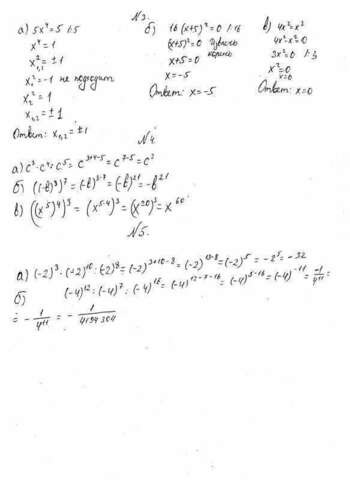 N3.
а) 5x⁴=5 |:5
x⁴=1
x²₁,₂=±1
x²₁=-1 не подходит
x²₂=1
x₁,₂=±1
Ответ: x₁,₂=±1
б) 16(x+5)²=0 |:16
(x+5)²=0
x+5=0 корень
x=-5
Ответ: x=-5
в) 4x²=x²
4x²-x²=0
3x²=0 |:3
x²=0
x=0
Ответ: x=0
N4.
а) c³·c⁴:c⁵=c³⁺⁴⁻⁵=c⁷⁻⁵=c²
б) ((-b)³)⁷=(-b)³·⁷=(-b)²¹=-b²¹
в) ((x⁵)⁴)³=(x⁵·⁴)³=(x²⁰)³=x⁶⁰
N5.
а) (-2)³·(-2)¹⁰:(-2)⁸=(-2)³⁺¹⁰⁻⁸=(-2)¹³⁻⁸=(-2)⁵=-2⁵=-32
б) (-4)¹²:(-4)⁷:(-4)¹⁶=(-4)¹²⁻⁷⁻¹⁶=(-4)⁵⁻¹⁶=(-4)⁻¹¹=-1/4¹¹=
=-1/4¹¹=-1/4194304